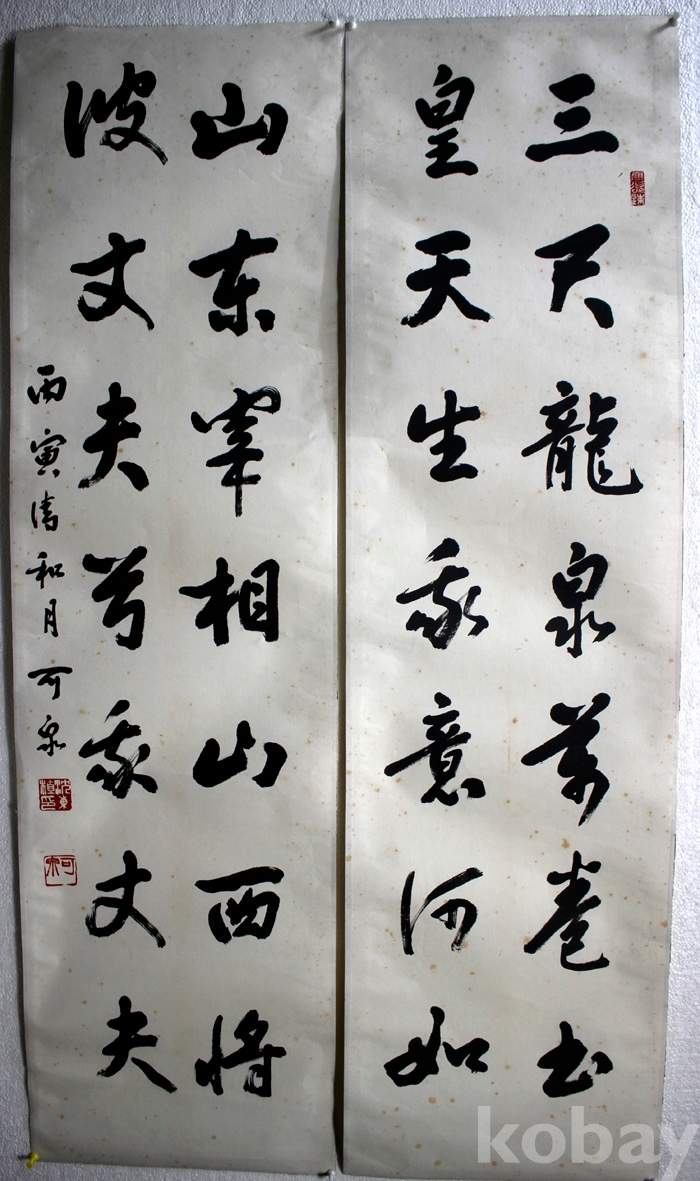 三尺龍泉萬卷书
皇天生我意何如
山东宰相山西将
彼丈夫兮我丈夫
丙寅清和月可泉
沈東植印
可泉
kobay